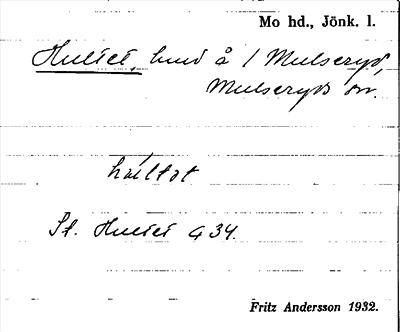 Mo hd., Jönk. l.
Hultet, hmd å 1 Mulseryd,
Mulseryds sn.
hultət
St. Hultet G 34.
Fritz Andersson 1932.